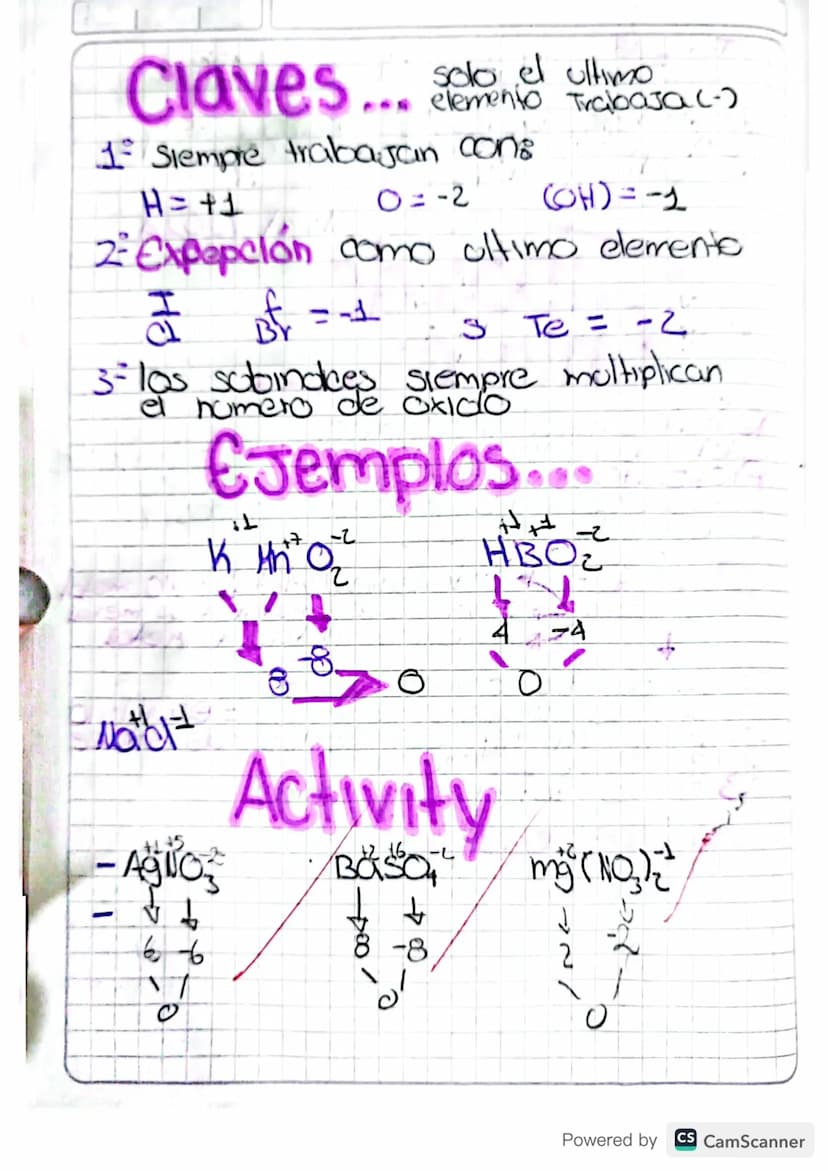 Claves... solo el ultimo
elemento Trabaja (-)
1º Siempre trabajan con:
H = +1 O = -2 (OH) = -1
2º Expepción como ultimo elemento
I f = -1 S Te = -2
Cl Br
3º los subindices siempre multiplican
el número de oxido
Ejemplos...
+1 +7 -2 +1 +1 -2
K Mn O2 HBO2
4 -4
8 -8 0 0
+1 -1
NaCl
Activity
+1 +5 -2 +2 +6 -2 +2 -1
- AgNO3 BaSO4 mg(NO3)2
-
6 -6 8 -8 2 -2
0 0 0
Powered by CS CamScanner